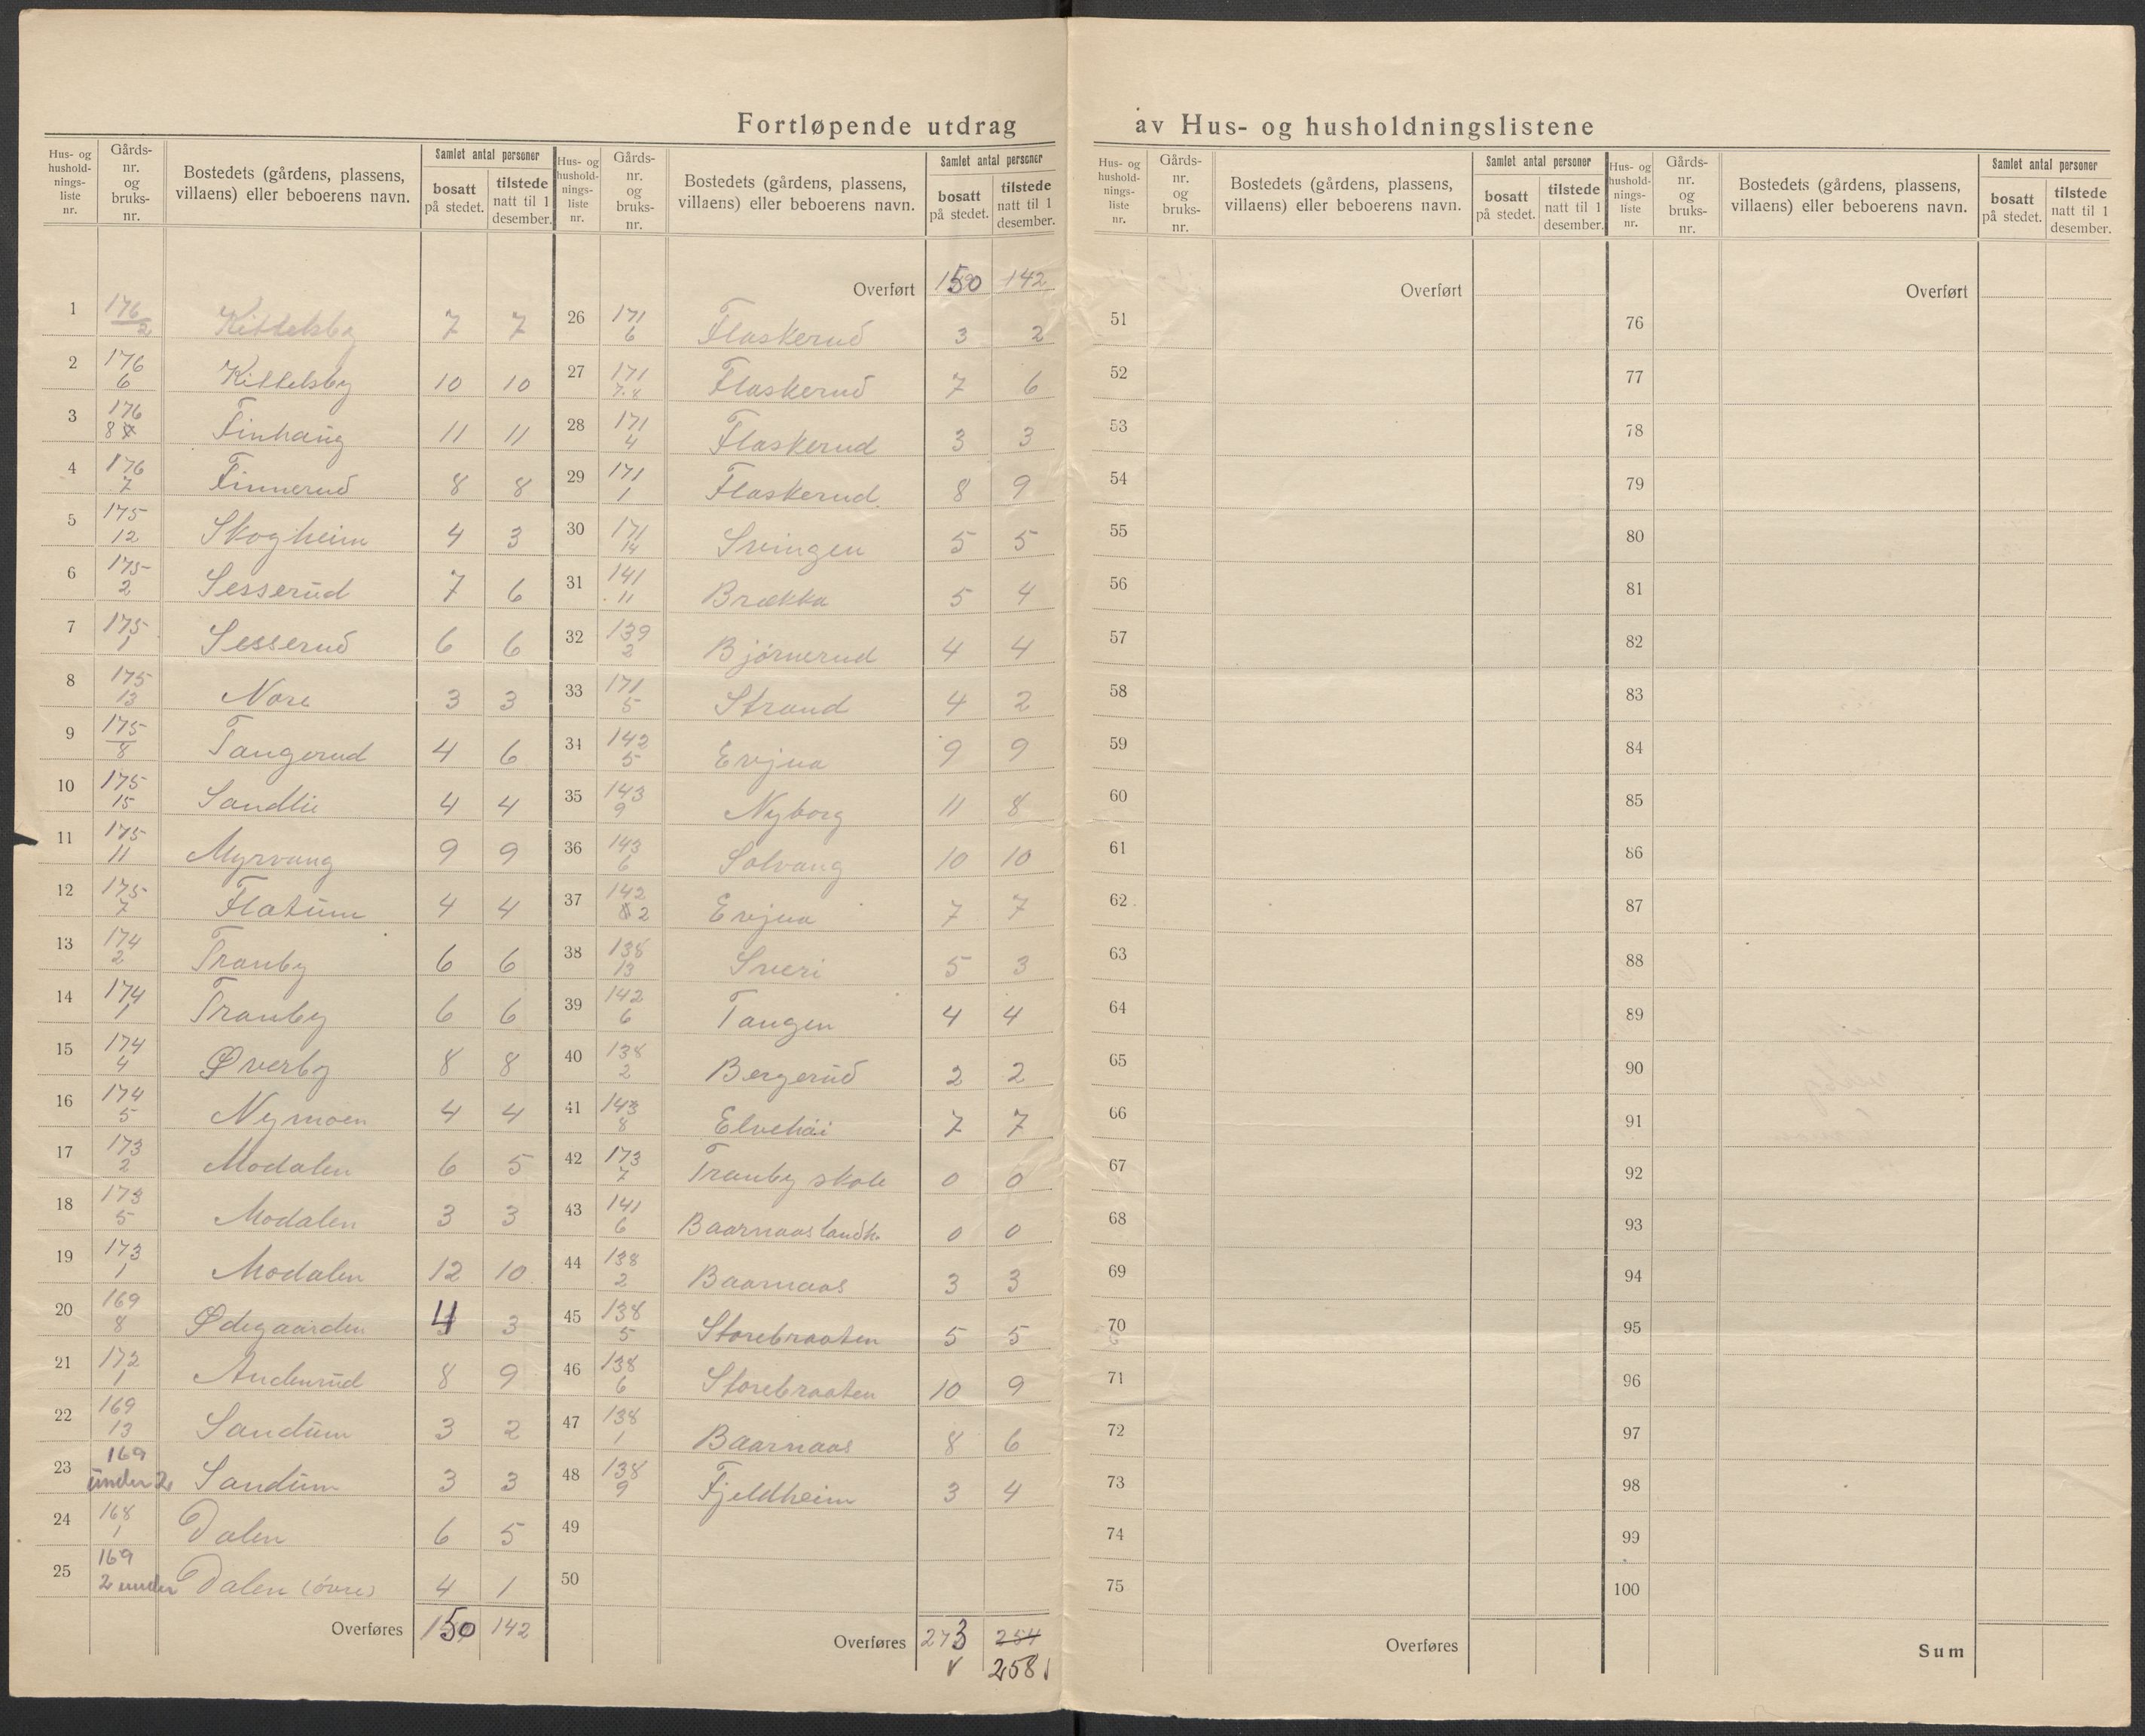 Fortløpende utdrag av Hus- og husholdningslistene
Hus- og hushold-nings-liste nr. Gårds-nr. og bruks-nr. Bostedets (gårdens, plassens, villaens) eller beboerens navn. Samlet antal personer bosatt på stedet. tilstede natt til 1 desember.
1 176/2 Kittelsby 7 7
2 176/6 Kittelsby 10 10
3 176/8 Finhaug 11 11
4 176/7 Finnerud 8 8
5 175/12 Skogheim 4 3
6 175/2 Sesserud 7 6
7 175/1 Sesserud 6 6
8 175/13 Nore 3 3
9 175/8 Tangerud 4 6
10 175/15 Sandlie 4 4
11 175/11 Myrvang 9 9
12 175/7 Flatum 4 4
13 174/2 Tranby 6 6
14 174/1 Tranby 6 6
15 174/4 Øverby 8 8
16 174/5 Nymoen 4 4
17 173/2 Modalen 6 5
18 173/5 Modalen 3 3
19 173/1 Modalen 12 10
20 169/8 Ødegaarden 4 3
21 172/1 Andenrud 8 9
22 169/13 Sandum 3 2
23 169 under 2 Sandum 3 3
24 168/1 Dalen 6 5
25 169 2 under Dalen (övre) 4 1
Overføres 150 142
Hus- og hushold-nings-liste nr. Gårds-nr. og bruks-nr. Bostedets (gårdens, plassens, villaens) eller beboerens navn. Samlet antal personer bosatt på stedet. tilstede natt til 1 desember.
Overført 150 142
26 171/6 Flaskerud 3 2
27 171/7.8 Flaskerud 7 6
28 171/4 Flaskerud 3 3
29 171/1 Flaskerud 8 9
30 171/14 Svingen 5 5
31 141/11 Brækka 5 4
32 139/2 Bjørnerud 4 4
33 171/5 Strand 4 2
34 142/5 Evjua 9 9
35 143/9 Nyborg 11 8
36 143/6 Solvang 10 10
37 142/2 Evjua 7 7
38 138/13 Sveri 5 3
39 142/6 Tangen 4 4
40 138/2 Bergerud 2 2
41 143/8 Elvehöi 7 7
42 173/7 Tranby skole 0 0
43 141/6 Baarnaas landh. 0 0
44 138/2 Baarnaas 3 3
45 138/5 Storebraaten 5 5
46 138/6 Storebraaten 10 9
47 138/1 Baarnaas 8 6
48 138/9 Fjeldheim 3 4
49
50
Overføres 273 254
258
Hus- og hushold-nings-liste nr. Gårds-nr. og bruks-nr. Bostedets (gårdens, plassens, villaens) eller beboerens navn. Samlet antal personer bosatt på stedet. tilstede natt til 1 desember.
Overført
51
52
53
54
55
56
57
58
59
60
61
62
63
64
65
66
67
68
69
70
71
72
73
74
75
Overføres
Hus- og hushold-nings-liste nr. Gårds-nr. og bruks-nr. Bostedets (gårdens, plassens, villaens) eller beboerens navn. Samlet antal personer bosatt på stedet. tilstede natt til 1 desember.
Overført
76
77
78
79
80
81
82
83
84
85
86
87
88
89
90
91
92
93
94
95
96
97
98
99
100
Sum